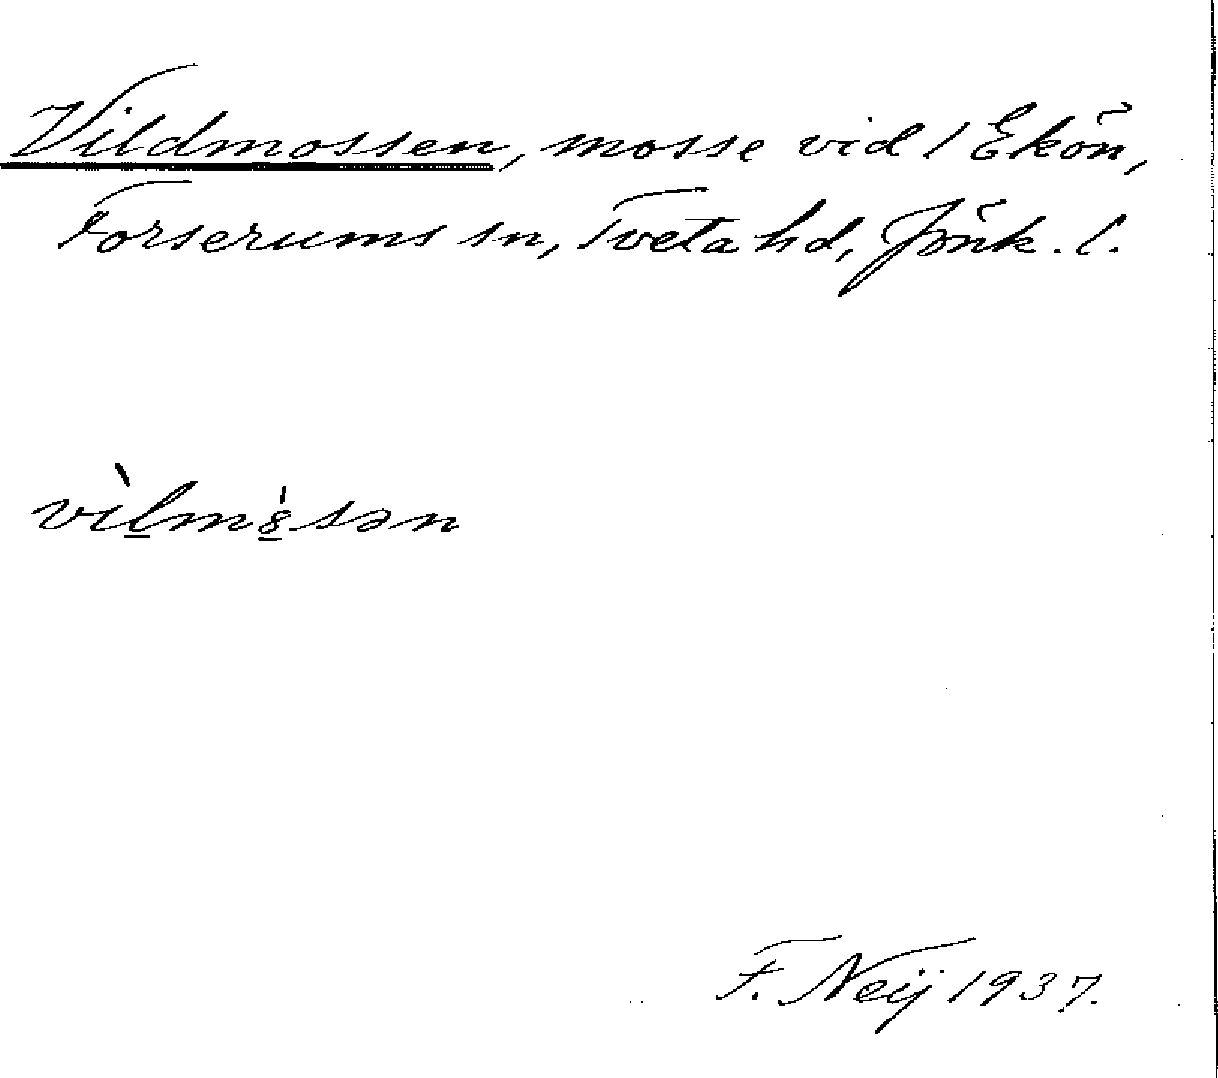 Vildmossen, mosse vid / Ekön,
Forserums sn, Tveta hd, Jönk. l.
F. Neij 1937.